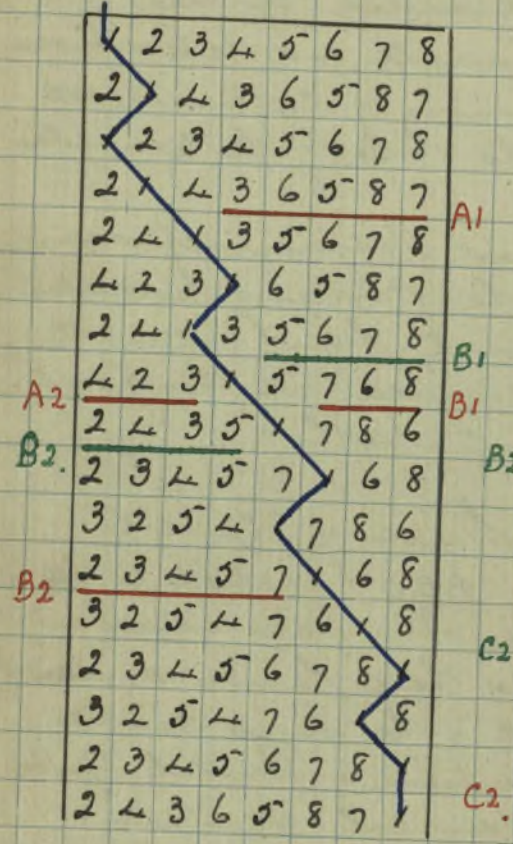 1 2 3 4 5 6 7 8
2 1 4 3 6 5 8 7
1 2 3 4 5 6 7 8
2 1 4 3 6 5 8 7 A1
2 4 1 3 5 6 7 8
4 2 3 1 6 5 8 7
2 4 1 3 5 6 7 8 B1
A2 4 2 3 1 5 7 6 8 B1
B2. 2 4 3 5 1 7 8 6 B2
2 3 4 5 7 1 6 8
3 2 5 4 1 7 8 6
B2 2 3 4 5 7 1 6 8
3 2 5 4 7 6 1 8 C2
2 3 4 5 6 7 8 1
3 2 5 4 7 6 1 8
2 3 4 5 6 7 8 1
2 4 3 6 5 8 7 1 C2.